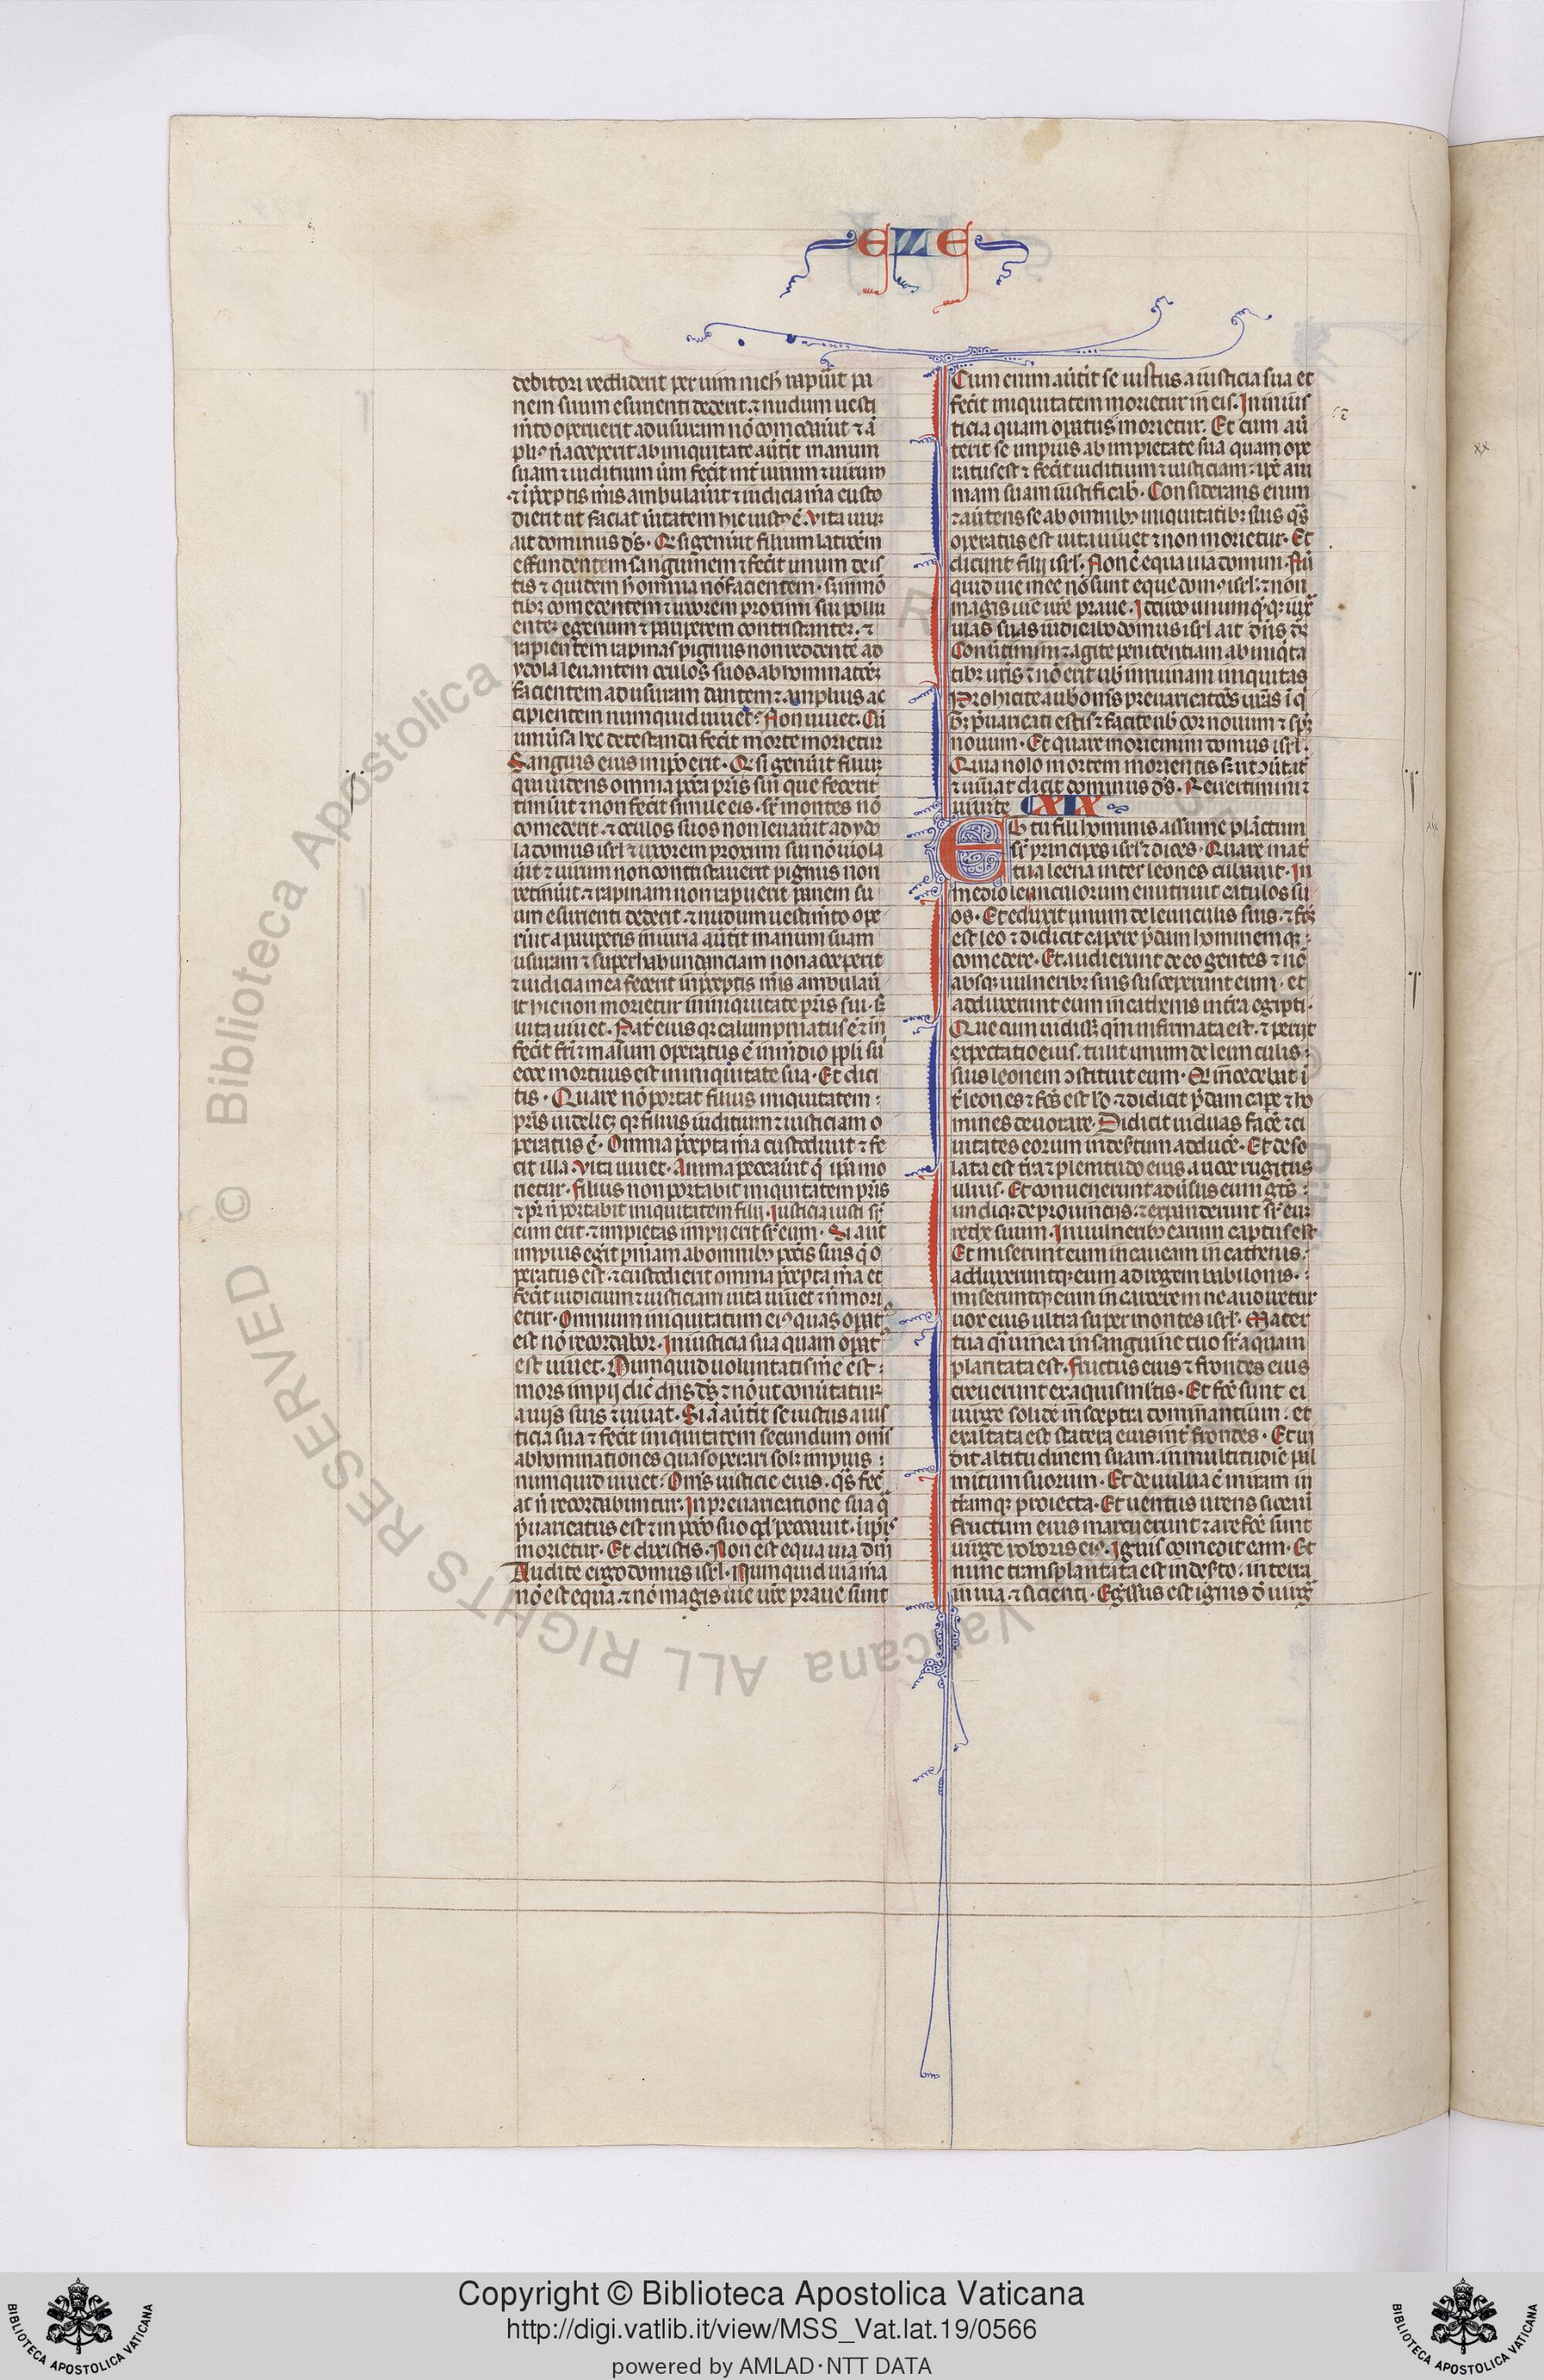 EZE
debitori reddiderit per uim nich̅ rapu͛it pa
nem suum esurienti dederit. ⁊ nudum uesti
m̅to operuerit ad usuram nō comodau͛it ⁊ a̅
pliꝰ n̅ acceperit ab iniquitate au͛tit manum
suam ⁊ iuditium u͛um fecit int͛ uirum ⁊ uirum
⁊ i p͛ceptis m̅is ambulau͛it ⁊ iudicia m̅a custo
dierit ut faciat u͛itatem hic iustꝰ ē. Vita uiuꝫ
ait dominus d̅s. Q̇ si genu͛it filium latronem
effundentem sanguinem ⁊ fecit unum de is
tis ⁊ quidem hec omnia nō facientem. sꝫ in mō
tibꝫ comedentem ⁊ uxorem proximi sui pollu
enteꝫ egenum ⁊ pauperem contristanteꝫ. ⁊
rapientem rapinas pignus non reddentē ad
ydola leuantem oculos suos abhominatōeꝫ
facientem ad usuram dantem ⁊ amplius ac
cipientem numquid uiuet? Non uiuet. Cū
uniu͛sa hec detestanda fecit morte morietur
Sanguis eius in ip̅o erit. Q̇ si genu͛it filiuꝫ
qui uidens omnia pc̅c̅a pr̅is sui que fecerit
timu͛it ⁊ non fecit simile eis. sr̅ montes nō
comederit. ⁊ oculos suos non leuau͛it ad ydo
la domus isrl̅ ⁊ uxorem proximi sui nō uiola
u͛it ⁊ uirum non contristauerit pignus non
retinu͛it. ⁊ rapinam non rapuerit panem su
um esurienti dederit. ⁊ nudum uestim̅to ope
ru͛it a pauperis iniuria au͛tit manum suam
usuram ⁊ superhabundanciam non acceperit
⁊ iudicia mea fecerit in p͛ceptis m̅is ambulau͛
it hic non morietur in iniquitate pr̅is sui. sꝫ
uita uiuet. Pat͛ eius qꝫ calumpniatus ē ⁊ ui̅
fecit fr̅i ⁊ malum operatus ē in m̅dio pp̅li sui
ecce mortuus est in iniquitate sua. Et dici
tis. Quare nō portat filius iniquitatem
pr̅is uidelicꝫ qꝫ filius iuditium ⁊ iusticiam o
peratus ē. Omnia p͛cepta m̅a custodiuit ⁊ fe
cit illa. Vita uiuet. Anima peccau͛int q̅ ip̅a mo
rietur. Filius non portabit iniquitatem pr̅is
⁊ pr̅ n̅ portabit iniquitatem filij. Iusticia iusti sr̅
eum erit. ⁊ impietas impij erit sr̅ eum. Si aut̅
impius egerit pn̅iam ab omnibꝰ pc̅c̅is suis q̅ o
peratus est. ⁊ custodierit omnia p͛cepta m̅a et
fecit iudicium ⁊ iusticiam uita uiuet ⁊ n̅ mori
etur. Omnium iniquitatum eiꝰ quas opat͛
est nō recordabor. In iusticia sua quam opat͛
est uiuet. Numquid uoluntatis me̅ est
mors impij dic̅ dn̅s d̅s ⁊ nō ut conu͛tatur
a uijs suis ⁊ uiuat. Si a̅ au͛tit se iustus a ius
ticia sua ⁊ fecit iniquitatem secundum om̅s
abhominationes quas operari solꝫ impius
numquid uiuet? Om̅s iusticie eius. q̅s fec̅
at n̅ recordabuntur. In preuaricatione sua q̅
p͛uaricatus est ⁊ in pc̅c̅o suo qd̅ peccauit. i ip̅is
morietur. Et dixistis. Non est equa uia dn̅i
Audite ergo domus isrl̅. Numquid uia m̅a
nō est equa. ⁊ nō magis uie ur̅e praue sunt
Cum enim au͛tit se iustus a iusticia sua et
fecit iniquitatem morietur in eis. In inius
ticia quam operatus morietur. Et cum au͛
terit se impius ab impietate sua quam ope
ratus est ⁊ fecit iuditium ⁊ iusticiam. ip̅e ani
mam suam iustificab̅. Considerans enim
⁊ au͛tens se ab omnibꝰ iniquitatibꝫ suis q̅s
operatus est uita uiuet ⁊ non morietur. Et
dicunt filij isrl̅. Non ē equa uia domini. Nū
quid uie mee nō sunt eque domꝰ isrl̅. ⁊ non
magis uie ur̅e praue. Idcirco unumq̇qꝫ iux̅
uias suas iudicabo domus isrl̅ ait dn̅s d̅s
Conu͛timini ⁊ agite penitentiam ab iniq̇ta
tibꝫ ur̅is ⁊ nō erit ub̅ in ruinam iniquitas
Prohicite a uob̅ om̅s preuaricatōes ur̅as i q̇
bꝫ p͛uaricati estis ⁊ facite uob̅ cor nouum ⁊ sp̅m
nouum. Et quare moriemini domus isrl̅.
Quia nolo mortem morientis sꝫ ut ↄu͛tat͛
⁊ uiuat dicit dominus d̅s. Reu͛ertimini ⁊
uiuite CXIX
Et tu fili hominis assume pla̅ctum
sr̅ principes isrl̅ ⁊ dices. Quare mat͛
tua leena inter leones cubauit. In
medio leunculorum enutriuit catulos su
os. Et eduxit unum de leunculis suis. ⁊ fc̅s
est leo ⁊ didicit capere p͛dam hominemqꝫ
comedere. Et audierunt de eo gentes ⁊ nō
absqꝫ uulneribꝫ suis susceperunt eum. et
adduxerunt eum in cathenis in t͛ra egipti.
Que cum uidissꝫ qm̅ infirmata est. ⁊ perijt
expectatio eius. tulit unum de leunculis
suis leonem ↄstituit eum. Q̇ incedebat i
t͛ leones ⁊ fc̅s est leo ⁊ didicit p͛dam cape ⁊ ho
mines deuorare. Didicit uiduas face͛ ⁊ ci
uitates eorum in des͛tum adduce͛. Et deso
lata est t͛ra ⁊ plenitudo eius a uoce rugitus
illius. Et conuenerunt adu͛sus eum gn̅tes
undiqꝫ de prouincijs. ⁊ expanderunt sr̅ euꝫ
rethe suum. In uulneribꝰ earum captus est
Et miserunt eum in caueam in cathenis.
adduxeruntqꝫ eum ad regem babilonis.
miseruntqꝫ eum in carcerem ne audiretur
uox eius ultra super montes isrl̅. Mater
tua q̅i uinea in sanguine tuo sr̅ aquam
plantata est. Fructus eius ⁊ frondes eius
creuerunt ex aquis ml̅tis. Et fc̅e sunt ei
uirge solide in sceptra dominantium. et
exaltata est statera eius int͛ frondes. Et ui
dit altitudinem suam. in multitudie̅ pal
mitum suorum. Et de uulsa ē in iram in
t͛ramqꝫ proiecta. Et uentus urens siccau͛
fructum eius marcuerunt ⁊ arefc̅e sunt
uirge roboris eiꝰ. Ignis comedit eam. Et
nunc transplantata est in des͛to. in terra
inuia. ⁊ sicienti. Eg̅ssus est ignis d̅ uirg̅
xx
Copyright © Biblioteca Apostolica Vaticana
http://digi.vatlib.it/view/MSS_Vat.lat.19/0566
powered by AMLAD·NTT DATA
BIBLIOTECA APOSTOLICA VATICANA
BIBLIOTECA APOSTOLICA VATICANA
© Biblioteca Apostolica Vaticana ALL RIGHTS RESERVED